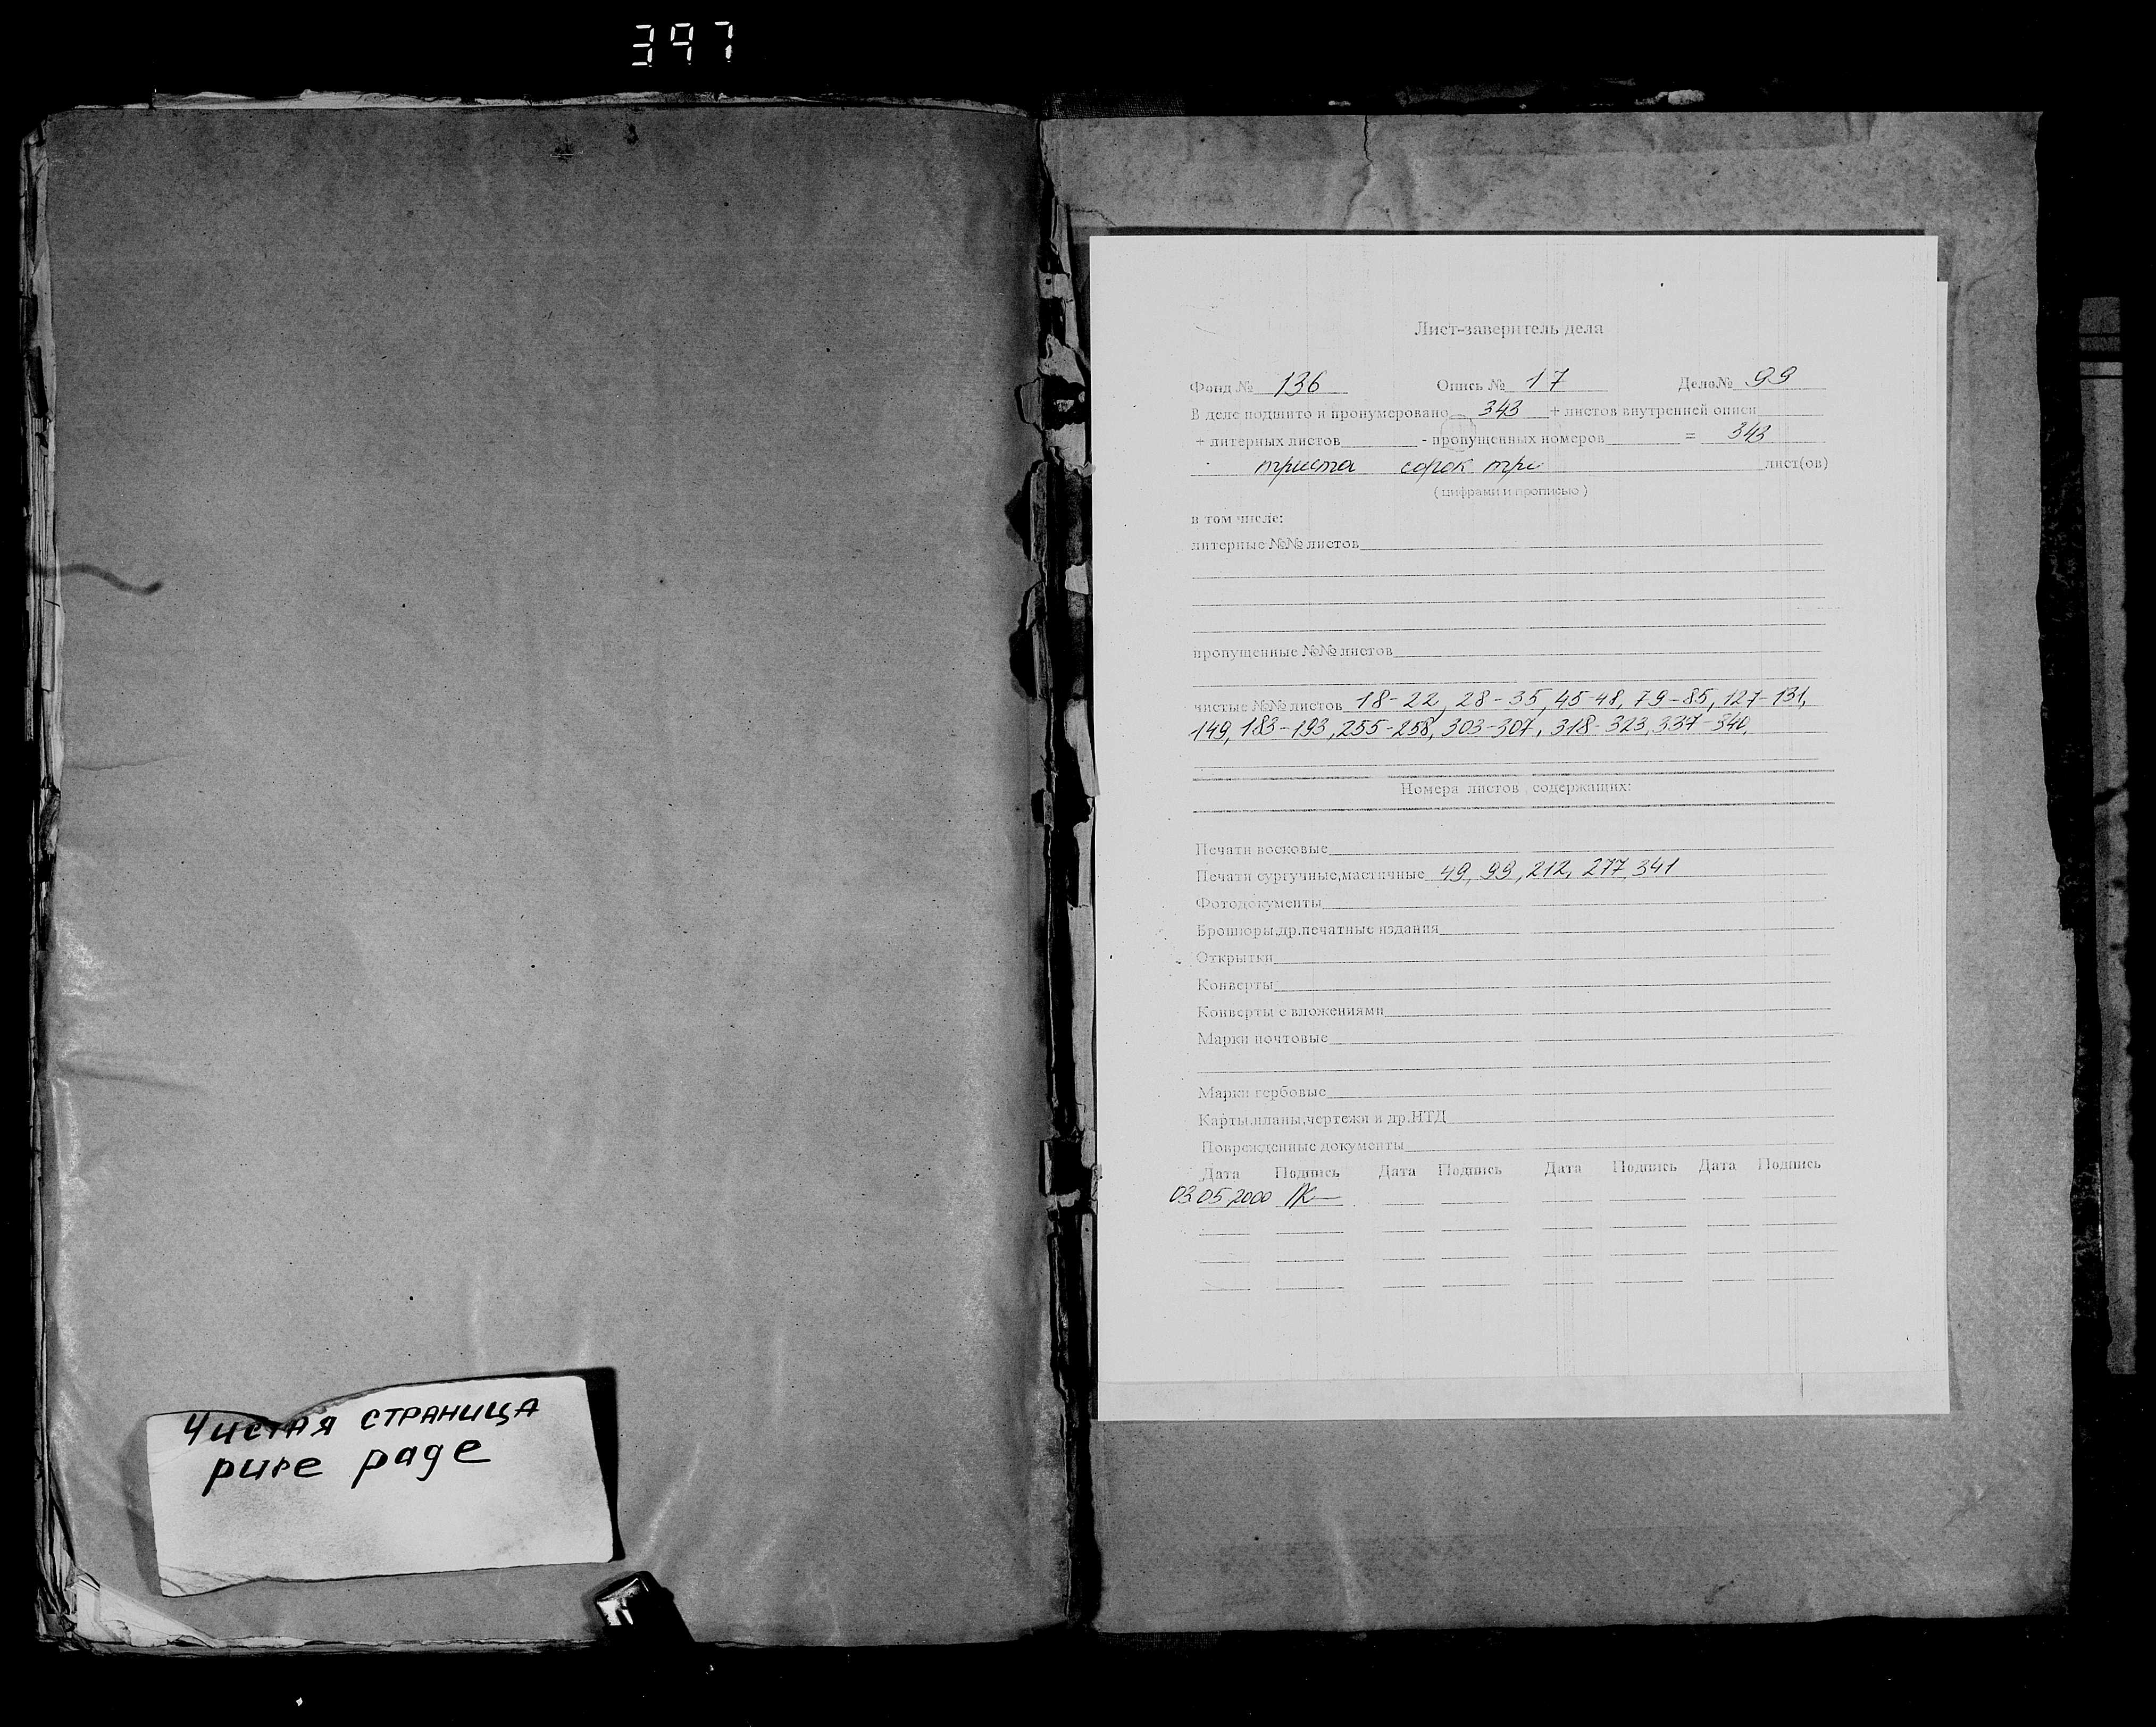 397
Чистая страница
pure page
Лист-заверитель дела
Фонд № 136 Опись № 17 Дело№ 99
В деле подшито и пронумеровано 343 + листов внутренней описи
+ литерных листов - пропущенных номеров = 343
триста сорок три лист(ов)
(цифрами и прописью)
в том числе:
литерные №№ листов
пропущенные №№ листов
чистые №№ листов 18-22, 28-35, 45-48, 79-85, 127-131,
149, 183-193, 255-258, 303-307, 318-323, 337-340.
Номера листов , содержащих:
Печати восковые
Печати сургучные,мастичные 49, 99, 212, 277, 341
Фотодокументы
Брошюры,др.печатные издания
Открытки
Конверты
Конверты с вложениями
Марки почтовые
Марки гербовые
Карты,планы,чертежи и др.НТД
Поврежденные документы
Дата Подпись Дата Подпись Дата Подпись Дата Подпись
03.05.2000